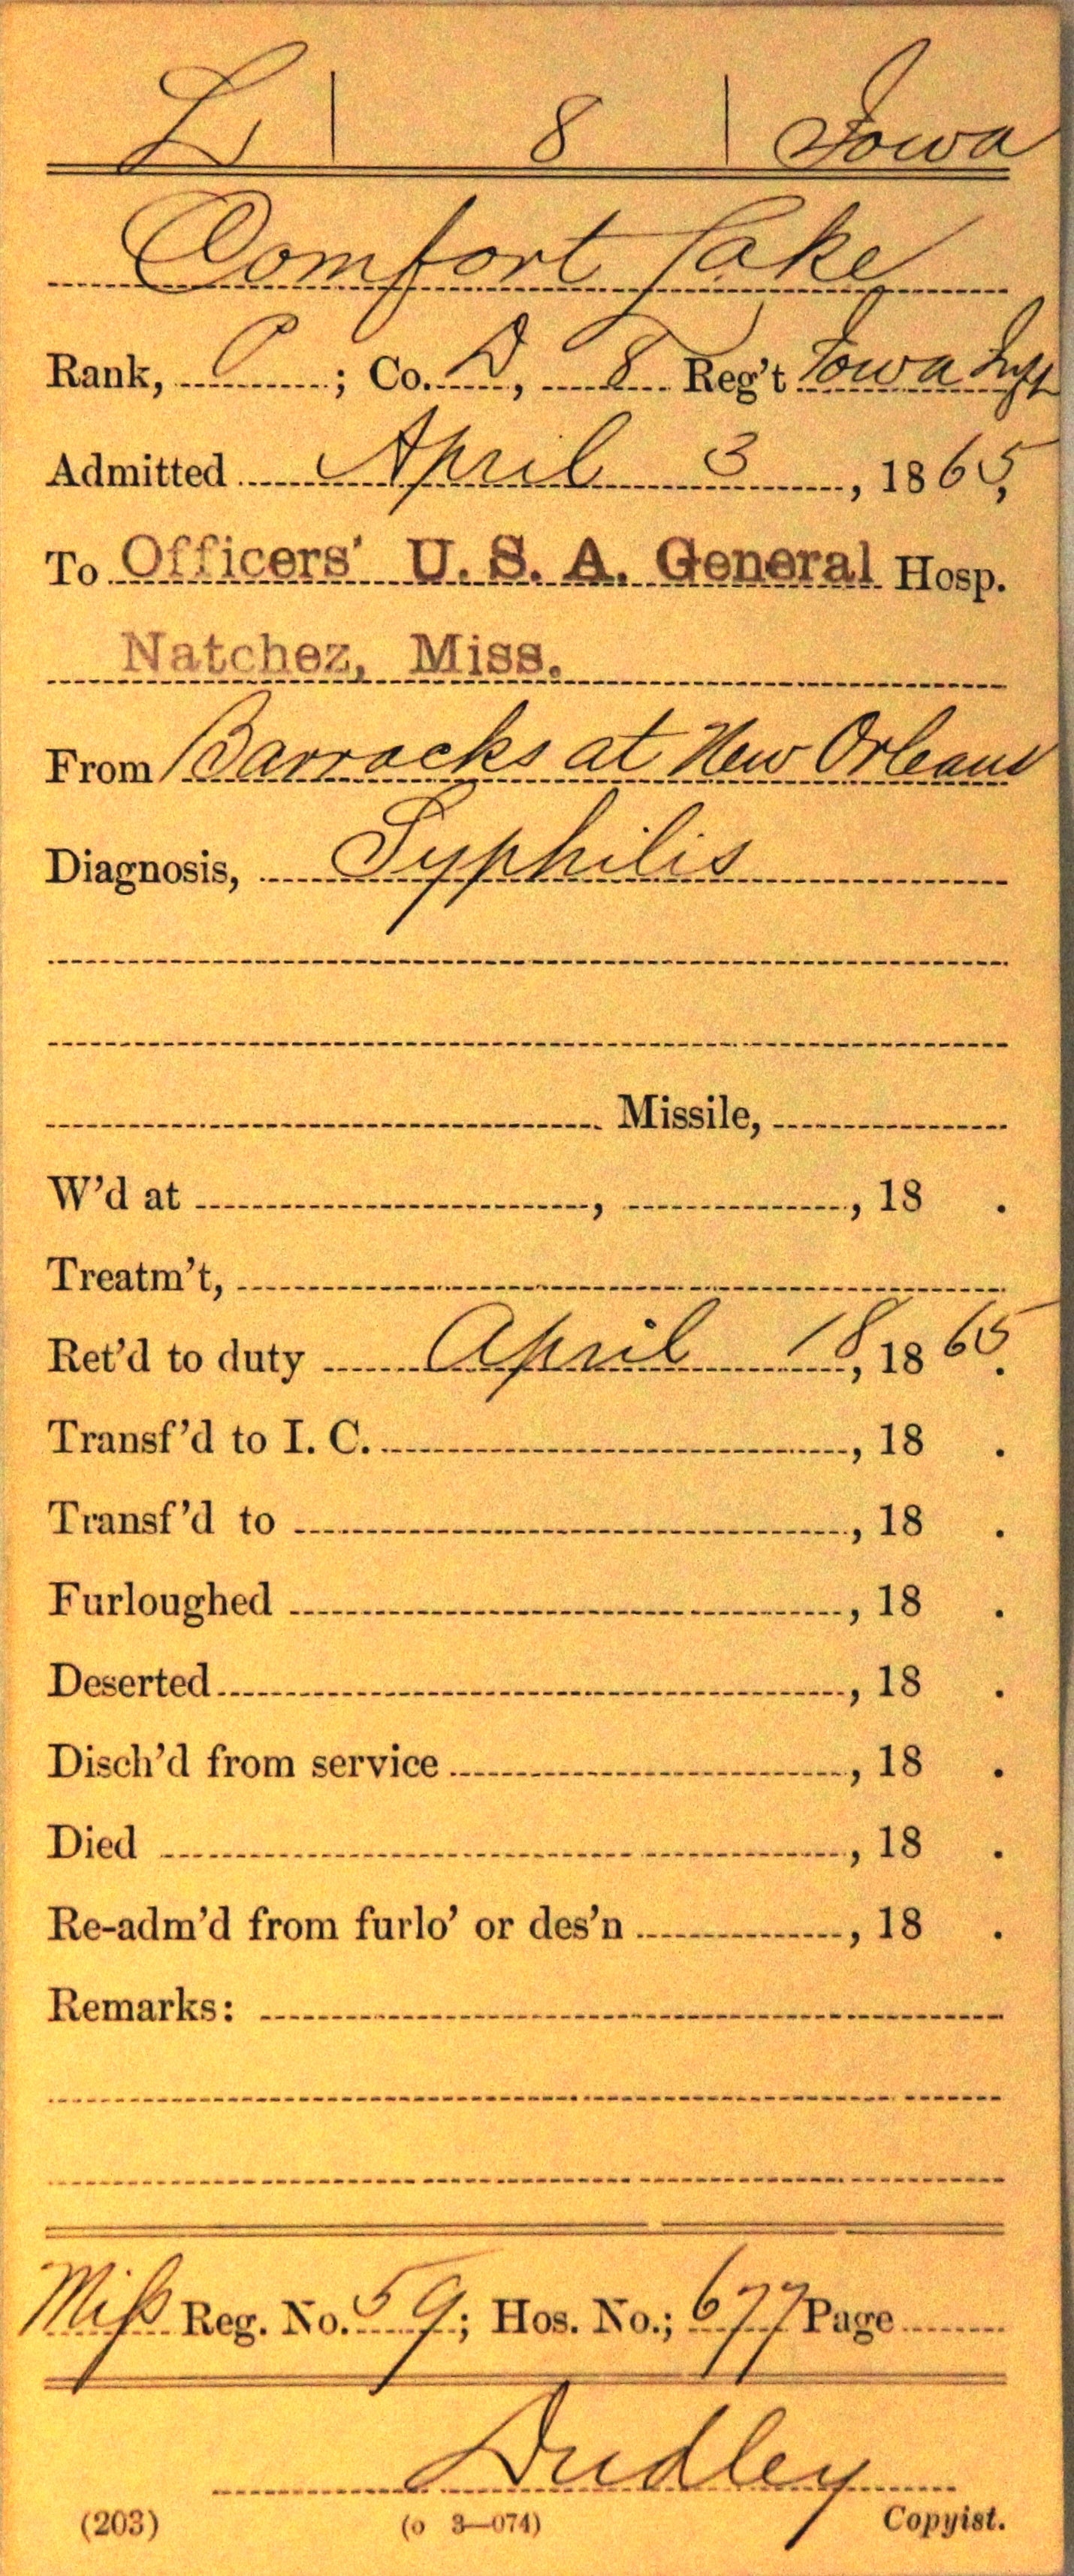 L | 8 | Iowa
Comfort Lake
Rank, P; Co. D, 8 Reg't Iowa Inft
Admitted April 3, 1865,
To Officers' U. S. A. General Hosp.
Natchez, Miss.
From Barracks at New Orleans
Diagnosis, Syphilis
Missile,
W'd at , , 18 .
Treatm't,
Ret'd to duty April 18, 1865.
Transf'd to I. C. , 18 .
Transf'd to , 18 .
Furloughed , 18 .
Deserted , 18 .
Disch'd from service , 18 .
Died , 18 .
Re-adm'd from furlo' or des'n , 18 .
Remarks:
Miss Reg. No. 59; Hos. No.; 677 Page
Dudley
(203) (o 3—074) Copyist.